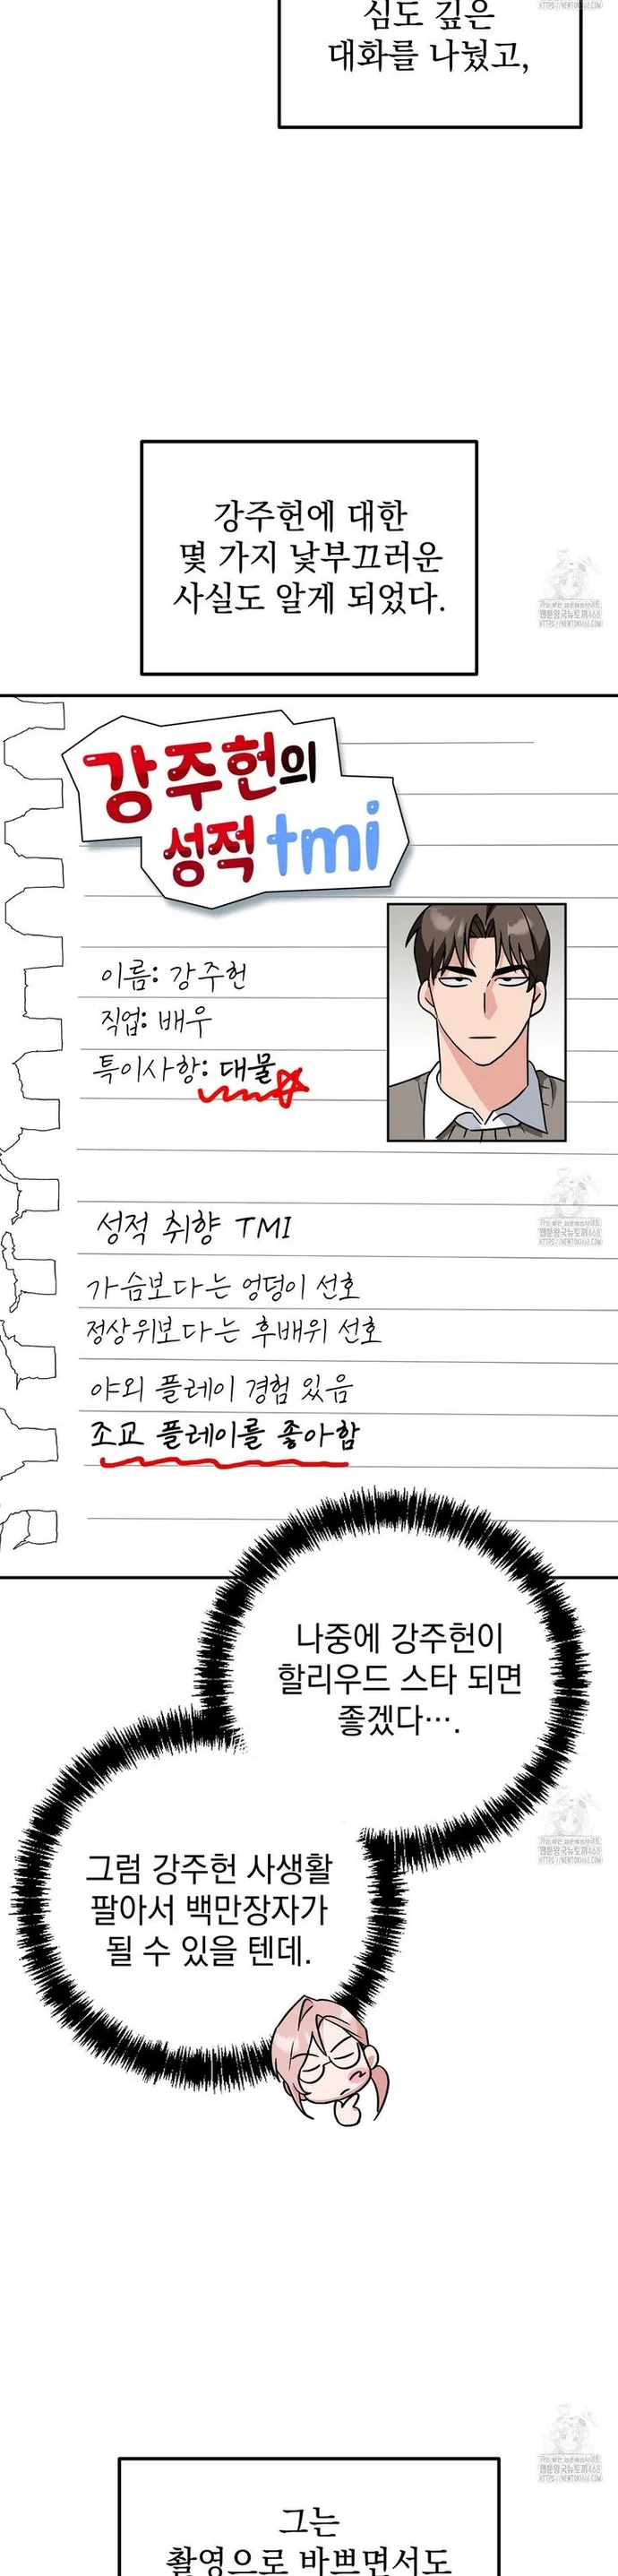 심도 깊은
대화를 나눴고,
강주헌에 대한
몇 가지 낯부끄러운
사실도 알게 되었다.
강주헌의
성적 tmi
이름: 강주헌
직업: 배우
특이사항: 대물
성적 취향 TMI
가슴보다는 엉덩이 선호
정상위보다는 후배위 선호
야외 플레이 경험 있음
조교 플레이를 좋아함
나중에 강주헌이
할리우드 스타 되면
좋겠다….
그럼 강주헌 사생활
팔아서 백만장자가
될 수 있을 텐데.
그는
촬영으로 바쁘면서도